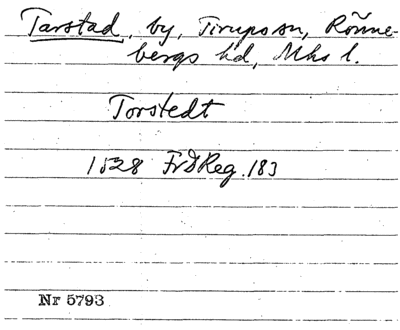 Tarstad, by, Tirups sn, Rönne-
bergs hd, Mhs l.
Torstedt
1528 FrDReg. 183
Nr 5793